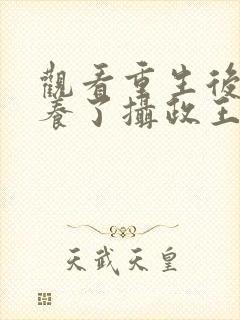 觀看重生後
養了攝政王
天武天皇